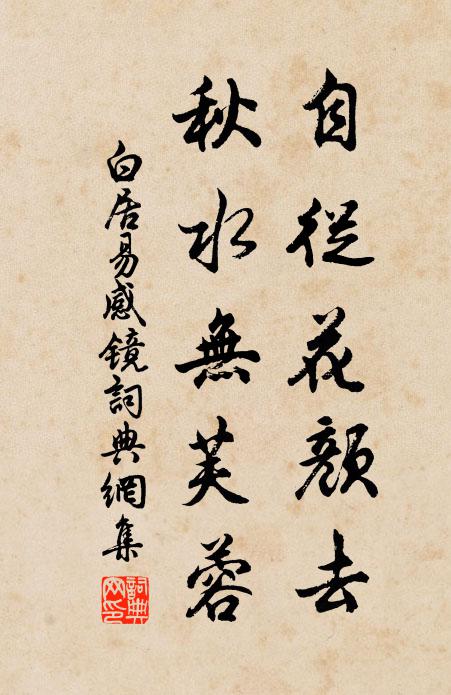 自從花顔去
秋水無芙蓉
白居易感鏡詞典網集
詞典
网印